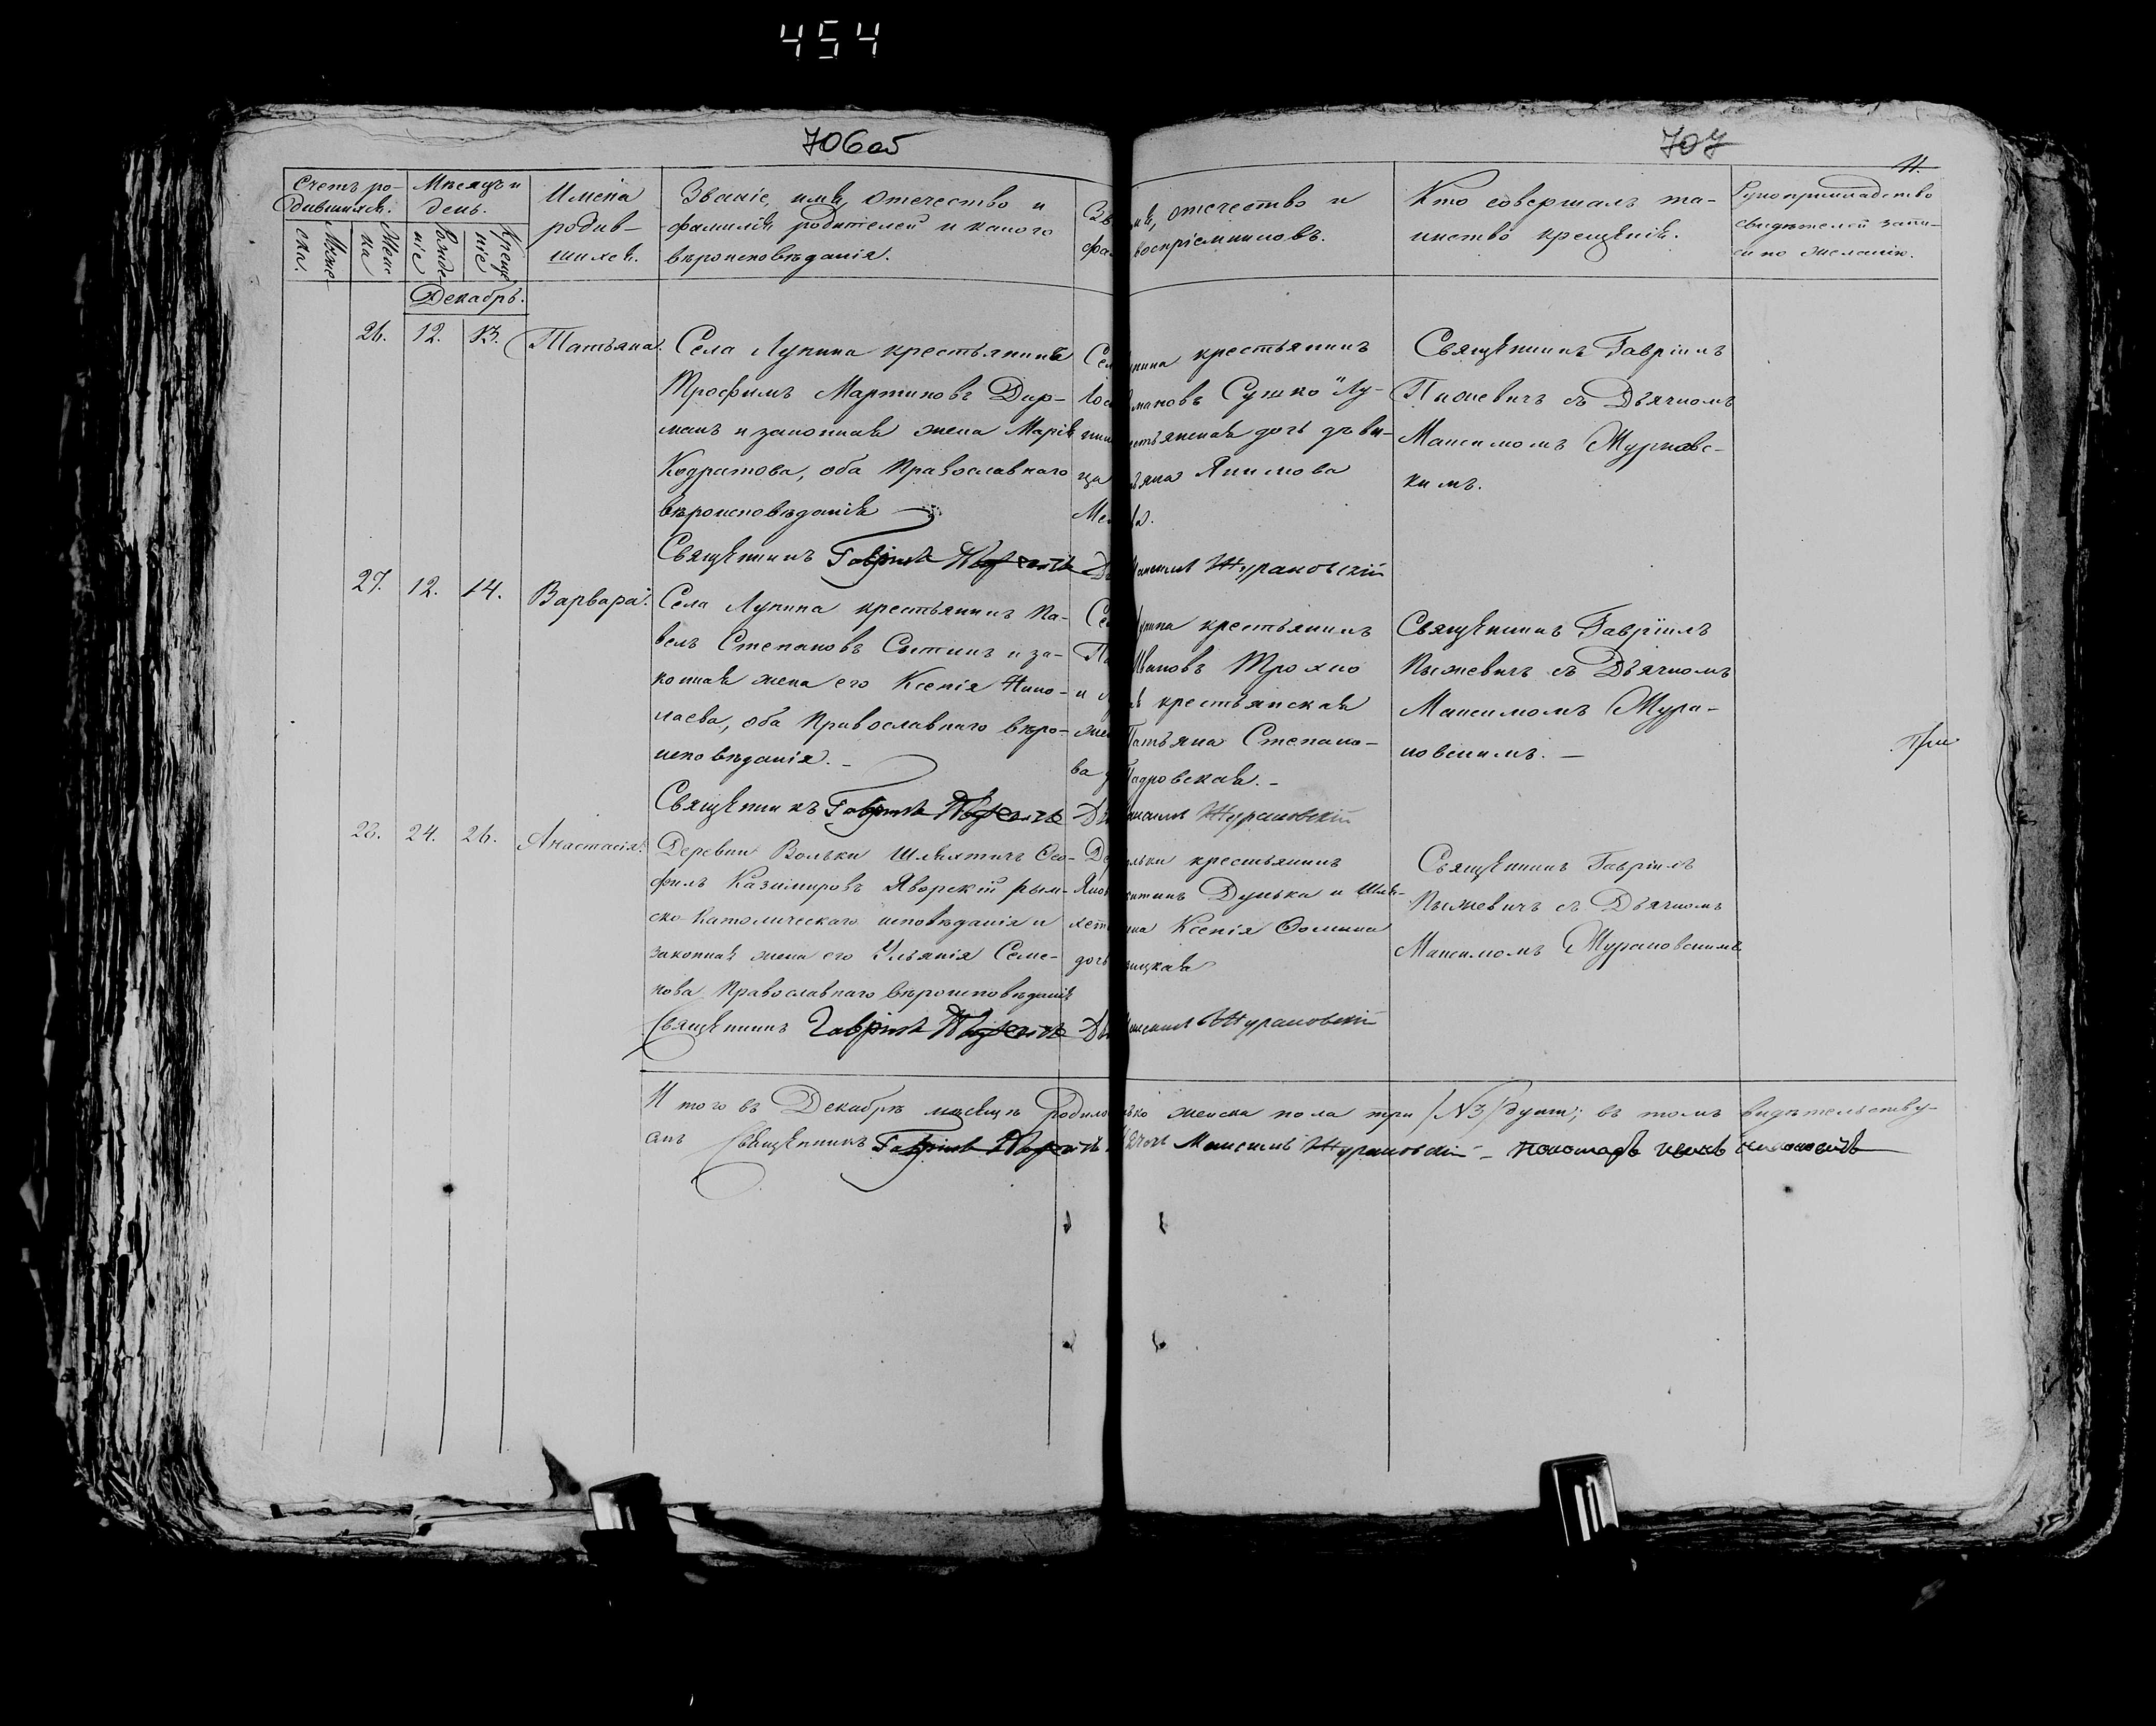 454
706об
707
11.
Счетъ ро-
дившихся.
Мѣсяцъ и
день.
Имена
родив-
шихся.
Званіе, имя, отечество и
фамилія родителей и какого
вѣроисповѣданія.
Зв
мя, отечество и
фа
воспріемниковъ.
Кто совершалъ та-
инство крещенія.
Рукоприкладство
свидѣтелей запи-
си по желанію.
Муже-
ска.
Женс
ка
Рожде
ніе
Креще
ніе
Декабрь.
26. 12. 13. Татьяна.
Села Лунина крестьянинъ
Трофимъ Мартиновъ Дир-
манъ и законная жена Марія
Кодратова, оба Православнаго
вѣроисповѣданія
Священникъ Гавріилъ
Се
нина крестьянинъ
мановъ Сушко "Лу-
стьянская дочь дѣви-
ца
яна Якимова
Ме
а.
Максимъ Журановскій
Священникъ Гавріилъ
Пыжевичъ съ Дьячкомъ
Максимомъ Журновс-
кимъ.
27. 12. 14. Варвара.
Села Лунина крестьянинъ Па-
велъ Степановъ Сытинъ и за-
конная жена его Ксенія Нико-
лаева, оба Православнаго вѣро-
исповѣданія. -
Священникъ Гавріилъ
Се
нина крестьянинъ
Ивановъ Трохно
я крестьянская
же
Татьяна Степано-
ва
дровская. -
Журановскій
Священникъ Гавріилъ
Пыжевичъ съ Дьячкомъ
Максимомъ Жура-
новскимъ. —
три
28. 24. 26. Анастасія.
Деревни Вольки Шляхтичъ Өео-
филъ Казимировъ Яворскій рим-
ско-Католическаго исповѣданія и
законная жена его Ульянія Семе-
нова Православнаго вѣроисповѣданія
Священникъ Гавріилъ
Де
льки крестьянинъ
китинъ Дунька и Шля-
хет
на Ксенія Өомина
дочь
ицкая
Журановскій
Священникъ Гавріилъ
Пыжевичъ съ Дьячкомъ
Максимомъ Журановскимъ
И того въ Декабрѣ мѣсяцѣ родило
ько женска пола три /№3/ душъ; въ томъ свидѣтельству-
емъ Священникъ Гавріилъ
Максимъ Журановскій - пономарь